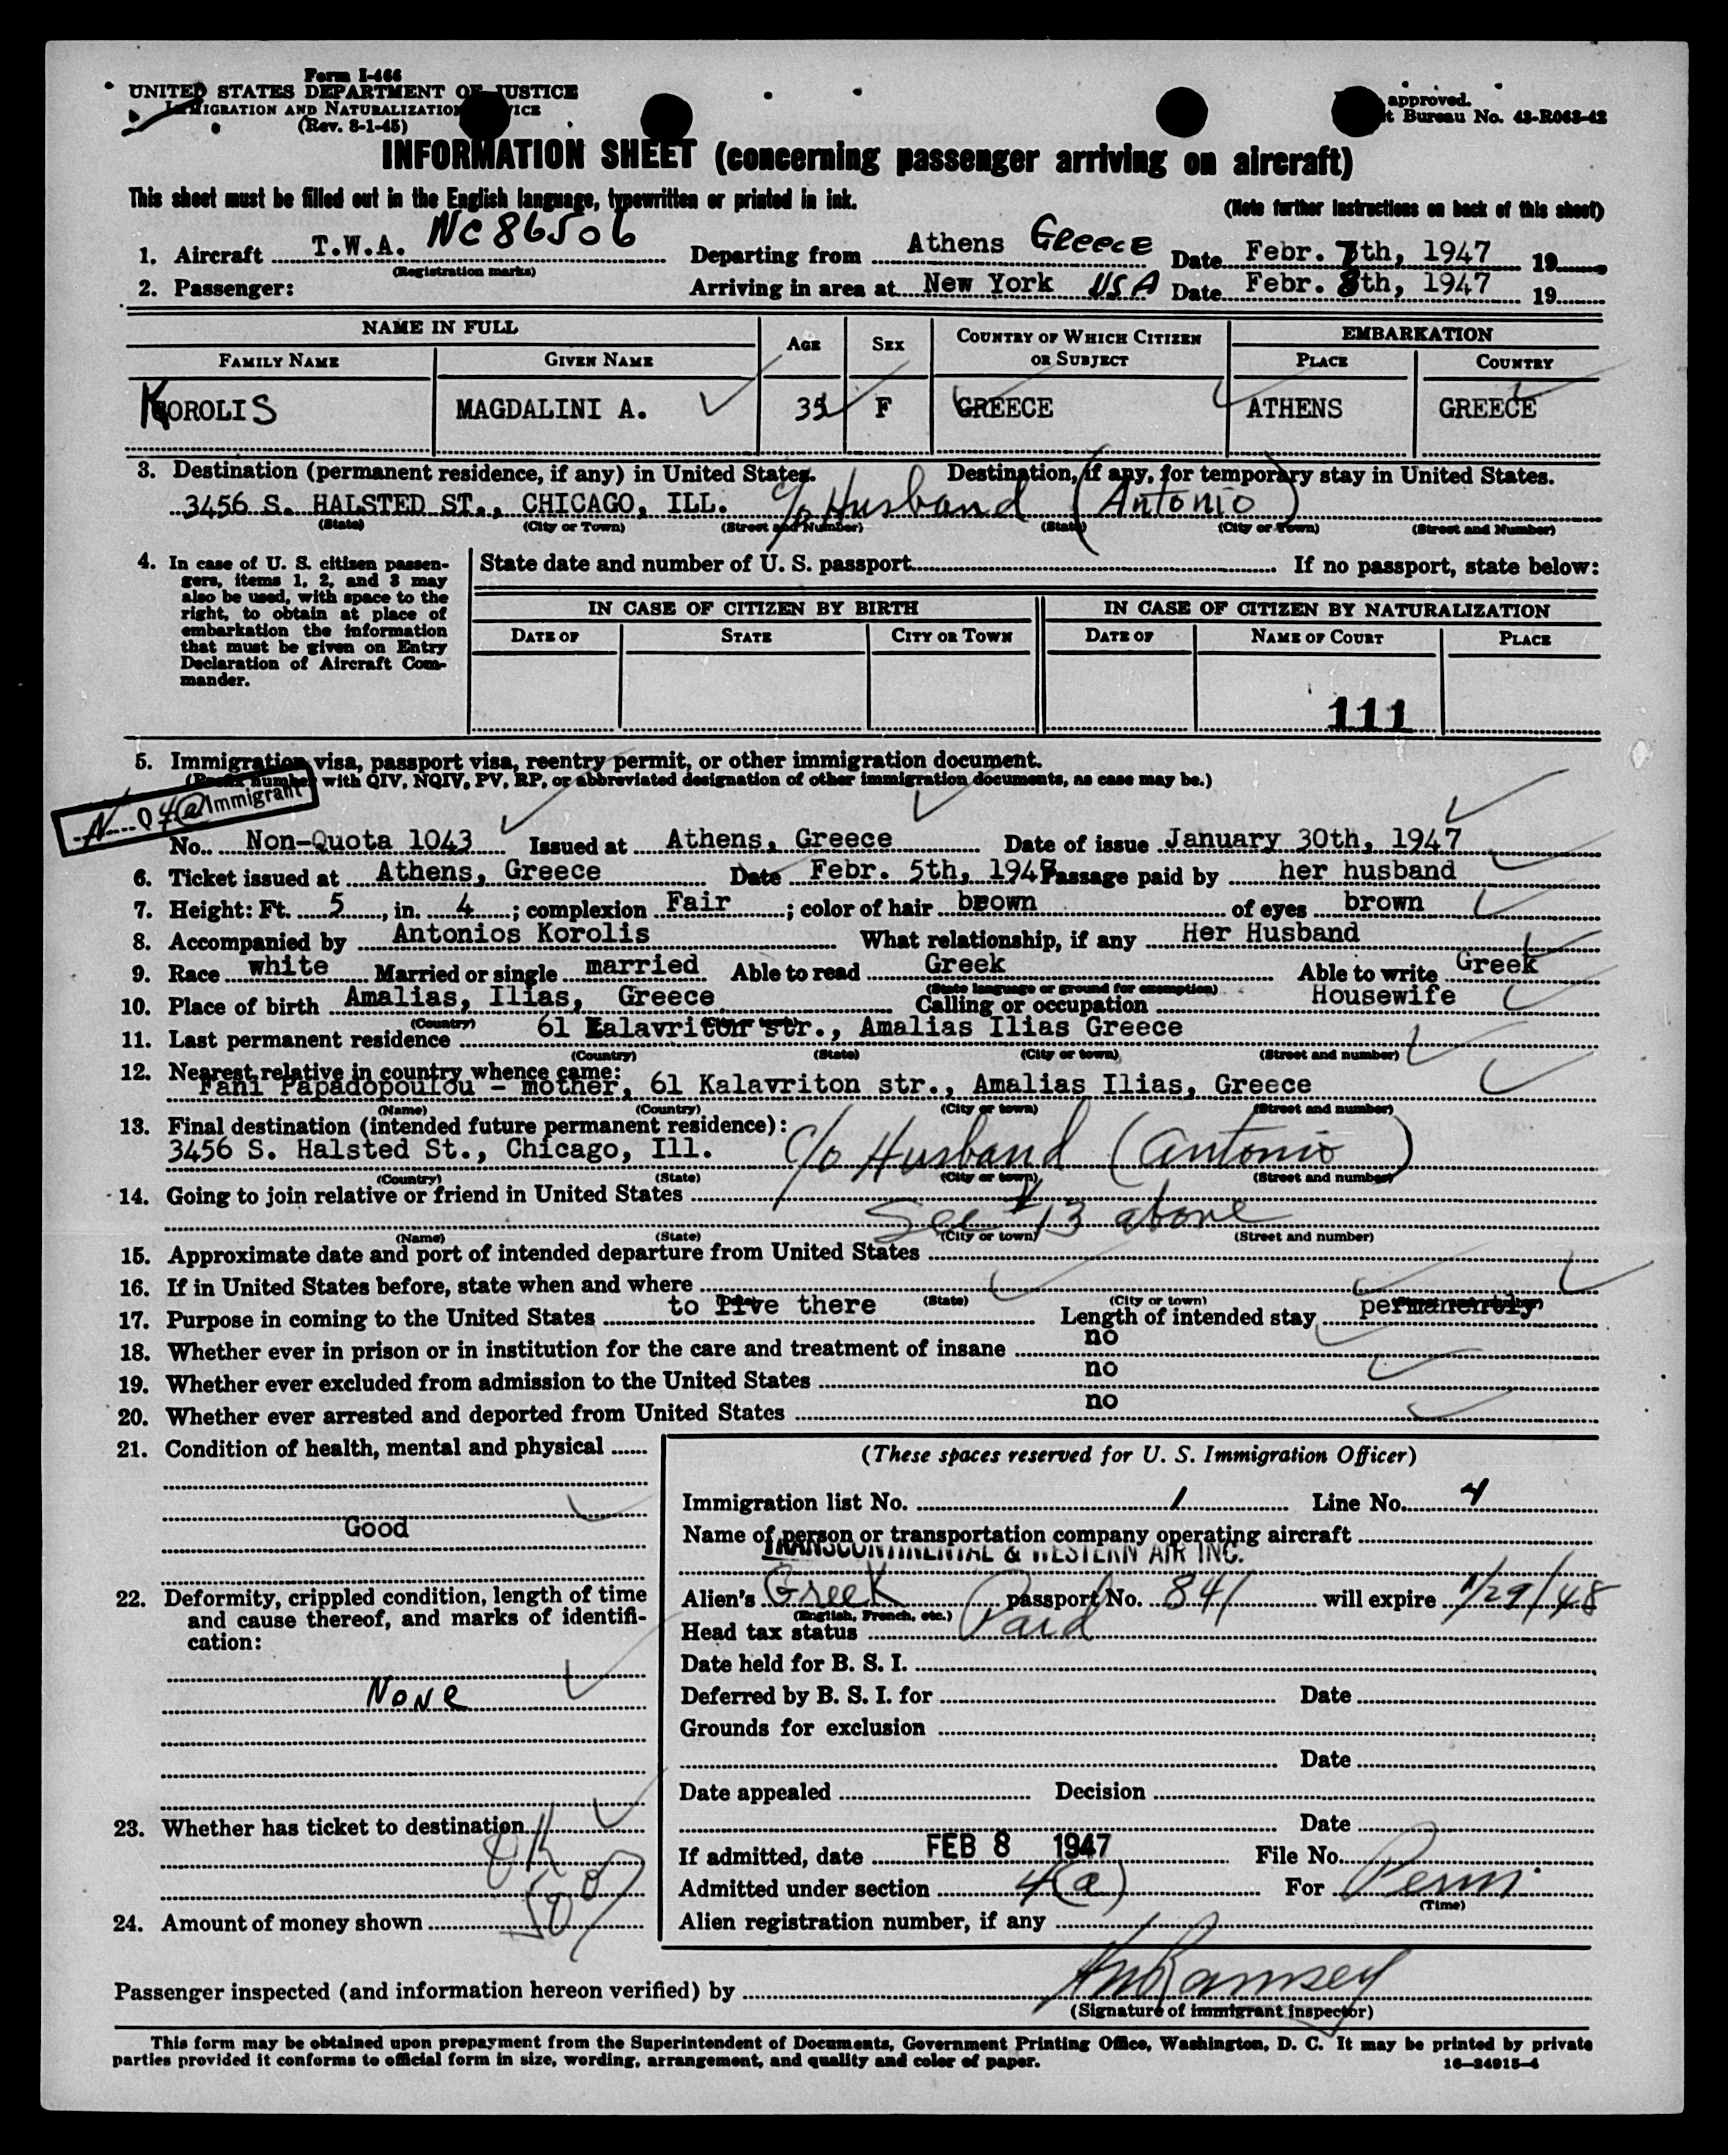 Form I-466
UNITED STATES DEPARTMENT OF JUSTICE
IMMIGRATION AND NATURALIZATION
(Rev. 8-1-45)
approved.
Bureau No. 43-R063-42
INFORMATION SHEET (concerning passenger arriving on aircraft)
This sheet must be filled out in the English language, typewritten or printed in ink.
(Note further instructions on back of this sheet)
1. Aircraft T.W.A. NC 86506 Departing from Athens Greece Date Febr. 7th, 1947 19
(Registration marks)
2. Passenger: Arriving in area at New York USA Date Febr. 8th, 1947 19
NAME IN FULL AGE SEX COUNTRY OF WHICH CITIZEN OR SUBJECT EMBARKATION
FAMILY NAME GIVEN NAME PLACE COUNTRY
KOROLIS MAGDALINI A. F GREECE ATHENS GREECE
3. Destination (permanent residence, if any) in United States. Destination, if any, for temporary stay in United States.
3456 S. HALSTED ST., CHICAGO, ILL. c/o Husband (Antonio)
(State) (City or Town) (Street and Number) (State) (City or Town) (Street and Number)
4. In case of U. S. citizen passen-
gers, items 1, 2, and 3 may
also be used, with space to the
right, to obtain at place of
embarkation the information
that must be given on Entry
Declaration of Aircraft Com-
mander.
State date and number of U. S. passport If no passport, state below:
IN CASE OF CITIZEN BY BIRTH IN CASE OF CITIZEN BY NATURALIZATION
DATE OF STATE CITY OR TOWN DATE OF NAME OF COURT PLACE
111
5. Immigration visa, passport visa, reentry permit, or other immigration document.
(Prefix number with QIV, NQIV, PV, RP, or abbreviated designation of other immigration documents, as case may be.)
N Q 4(a) Immigrant
No. Non-Quota 1043 Issued at Athens, Greece Date of issue January 30th, 1947
6. Ticket issued at Athens, Greece Date Febr. 5th, 1947 Passage paid by her husband
7. Height: Ft. 5, in. 4; complexion Fair; color of hair brown of eyes brown
8. Accompanied by Antonios Korolis What relationship, if any Her Husband
9. Race white Married or single married Able to read Greek Able to write Greek
(State language or ground for exemption)
10. Place of birth Amalias, Ilias, Greece Calling or occupation Housewife
(Country) (City or town)
11. Last permanent residence 61 Kalavriton str., Amalias Ilias Greece
(Country) (State) (City or town) (Street and number)
12. Nearest relative in country whence came:
Fani Papadopoulou - mother, 61 Kalavriton str., Amalias Ilias, Greece
(Name) (Country) (City or town) (Street and number)
13. Final destination (intended future permanent residence):
3456 S. Halsted St., Chicago, Ill. c/o Husband (Antonio)
(Country) (State) (City or town) (Street and number)
14. Going to join relative or friend in United States
See # 13 above
(Name) (State) (City or town) (Street and number)
15. Approximate date and port of intended departure from United States
16. If in United States before, state when and where
(State) (City or town)
17. Purpose in coming to the United States to live there Length of intended stay permanently
18. Whether ever in prison or in institution for the care and treatment of insane no
19. Whether ever excluded from admission to the United States no
20. Whether ever arrested and deported from United States no
21. Condition of health, mental and physical
Good
22. Deformity, crippled condition, length of time
and cause thereof, and marks of identifi-
cation:
None
23. Whether has ticket to destination
OK
24. Amount of money shown
(These spaces reserved for U. S. Immigration Officer)
Immigration list No. 1 Line No. 4
Name of person or transportation company operating aircraft
TRANSCONTINENTAL & WESTERN AIR INC.
Alien's Greek passport No. 841 will expire 1/29/48
(English, French, etc.)
Head tax status Paid
Date held for B. S. I.
Deferred by B. S. I. for Date
Grounds for exclusion
Date
Date appealed Decision
Date
If admitted, date FEB 8 1947 File No.
Admitted under section 4(a) For Perm
(Time)
Alien registration number, if any
Passenger inspected (and information hereon verified) by Ramsey
(Signature of immigrant inspector)
This form may be obtained upon prepayment from the Superintendent of Documents, Government Printing Office, Washington, D. C. It may be printed by private
parties provided it conforms to official form in size, wording, arrangement, and quality and color of paper. 16-24915-4